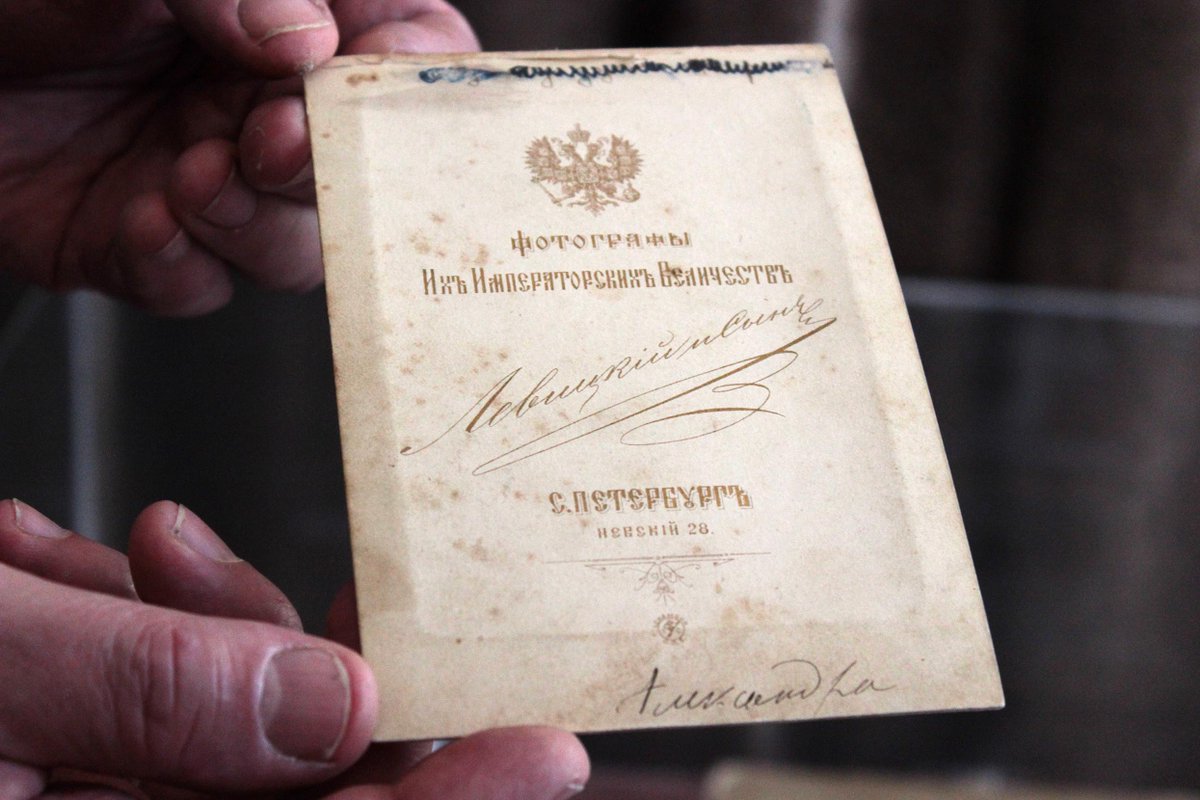 Фотографы
Ихъ Императорскихъ Величествъ
Левицкій и Сынъ
С. Петербургъ
Невскій 28.
Александра